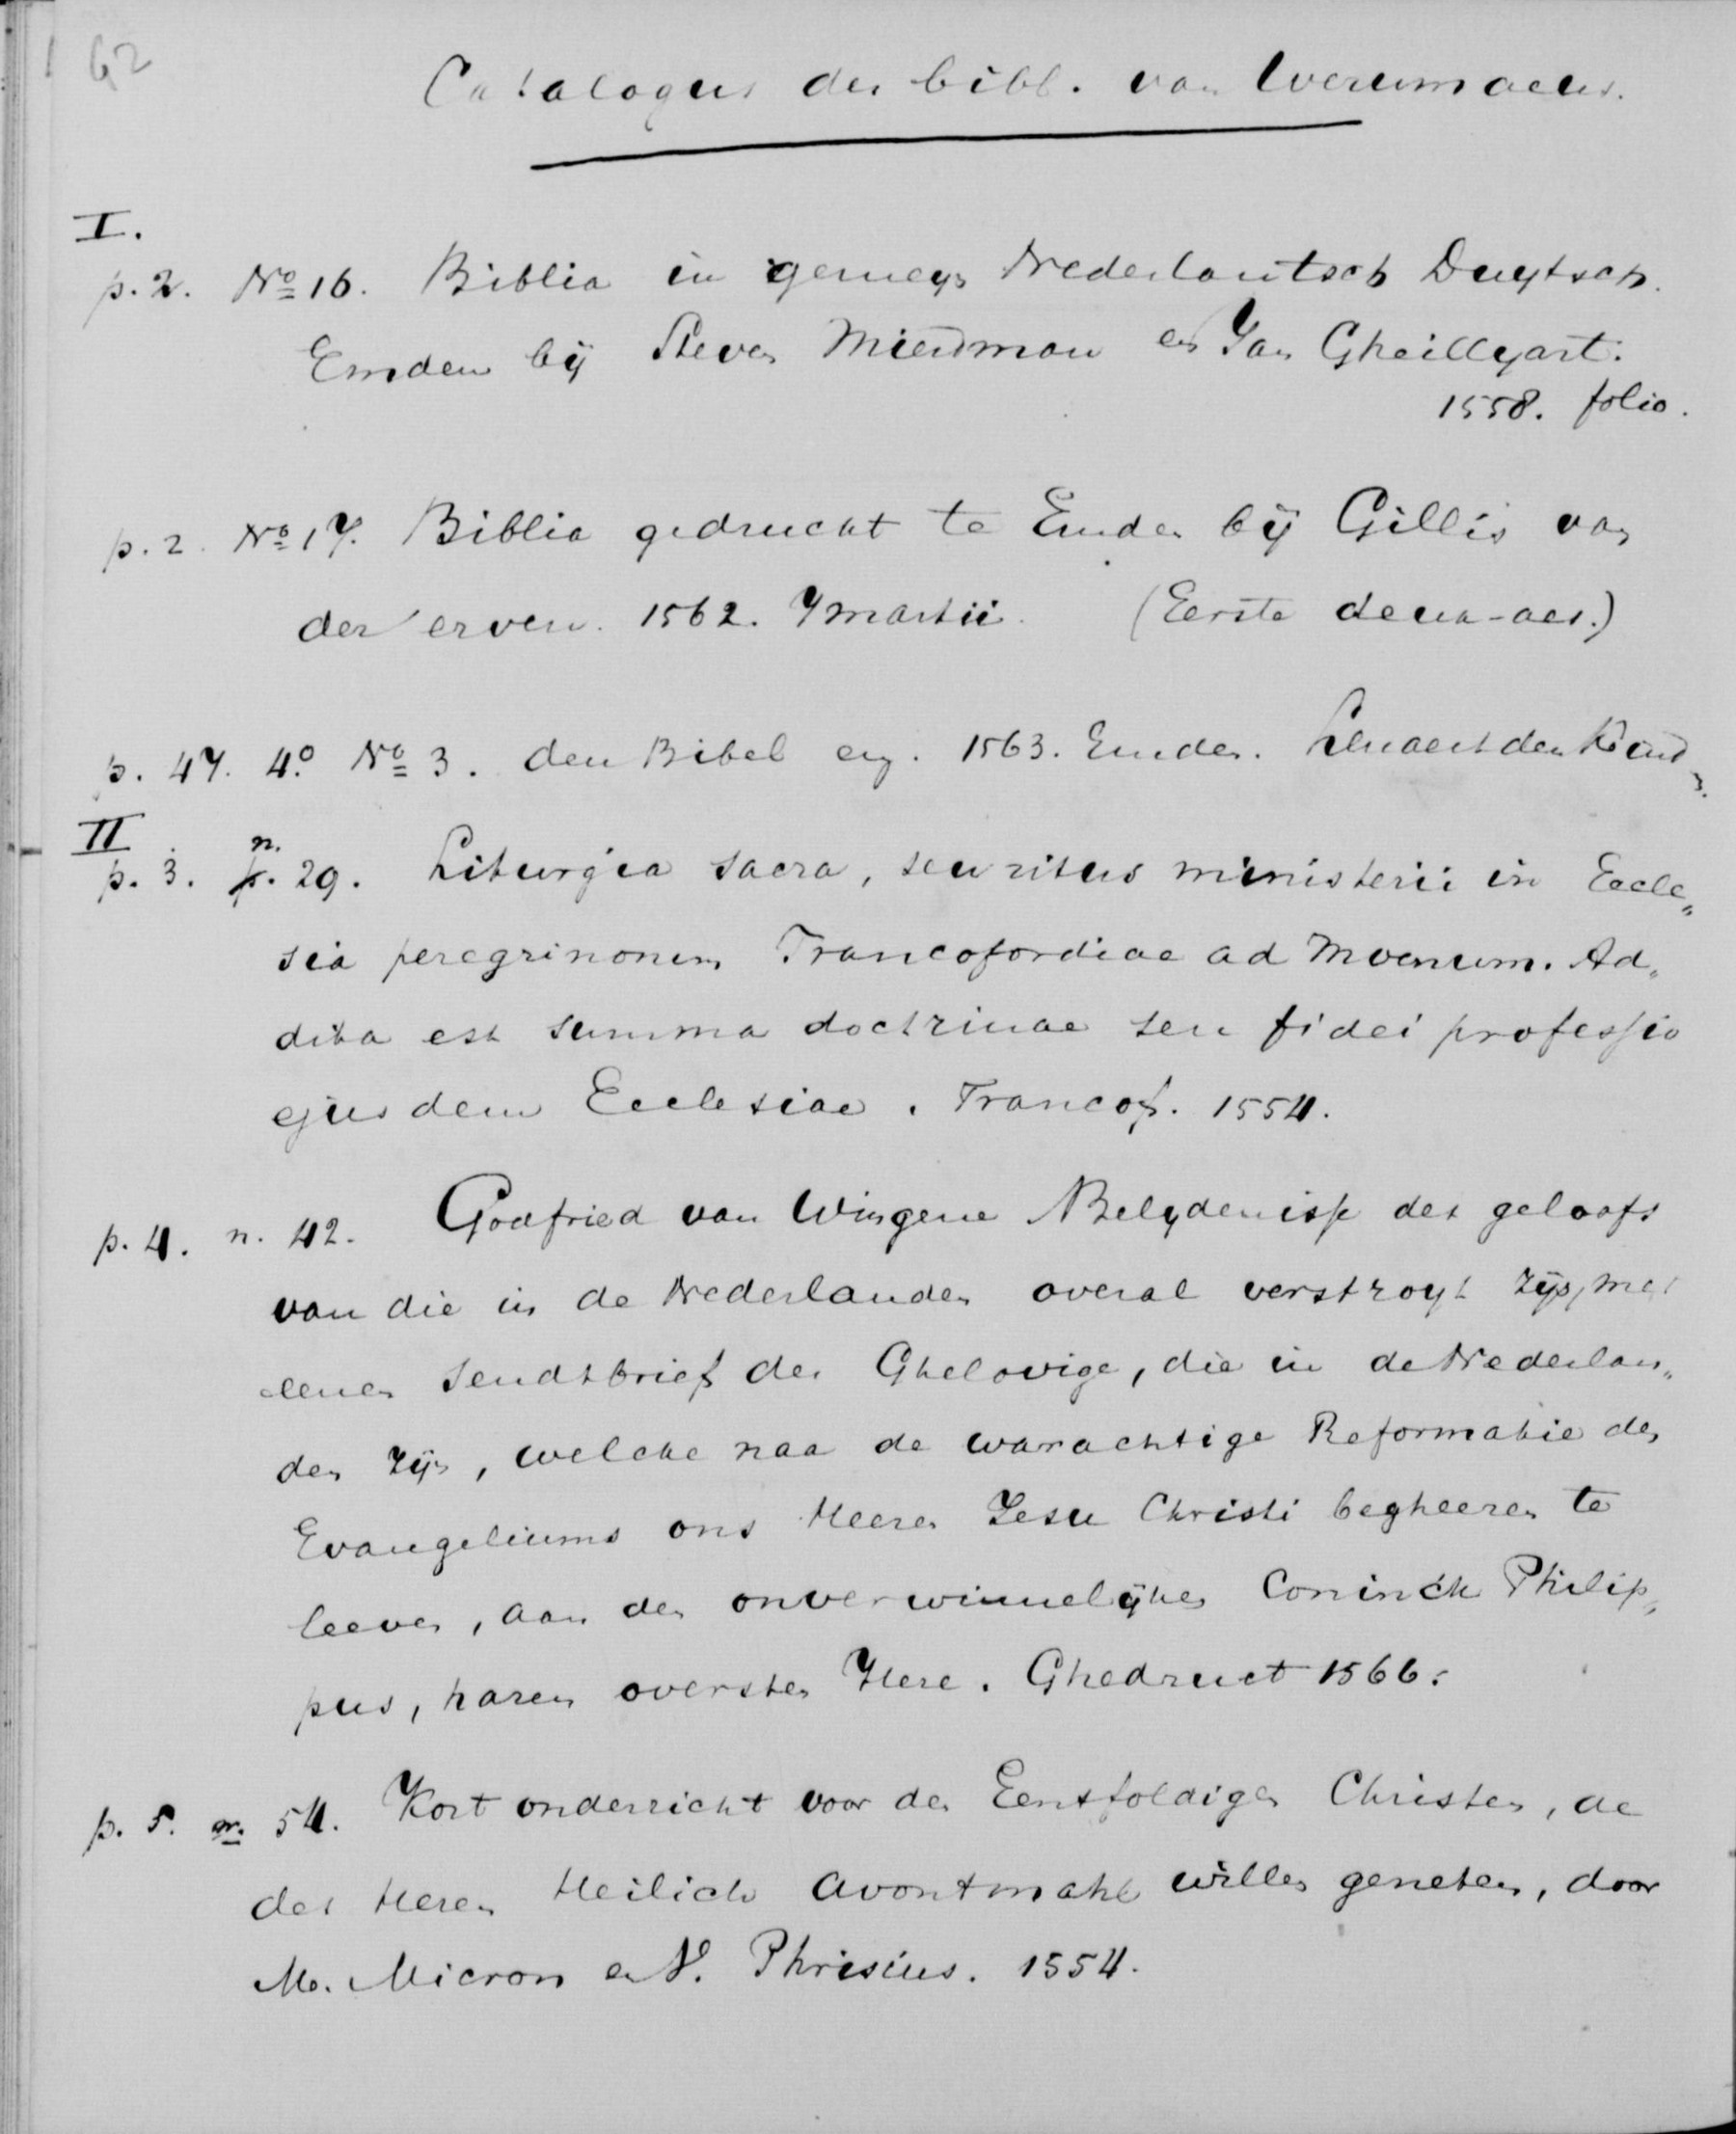 62
Catalogus der bibl. van Werumaeus.
I.
p. 2. No 16. Biblia in gemeyn Nederlantsch Duytsch.
Emden bij Steven Mierdman en Jan Gheillyart.
1558. folio.
p. 2. No 17. Biblia gedruckt te Emden bij Gillis van
der erven. 1562. 7 martii. (Eerste deux-aes.)
p. 47. 4o No 3. den Bibel enz. 1563. Emden. Lenaert der Kind
II
p. 3. n. 29. Liturgia sacra, seu ritus ministerii in Eccle„
sia peregrinorum Francofordiae ad Moenum. Ad„
dita est summa doctrinae seu fidei professio
ejusdem Ecclesiae. Francof. 1554.
p. 4. n. 42. Godfried van Wingene Belydenisse des geloofs
van die in de Nederlanden overal verstroyt zijn, met
eenen Sendtbrief der Ghelovige, die in de Nederlan„
den zijn, welcke naa de warachtige Reformatie des
Evangeliums ons Heeren Jesu Christi begheeren te
leeven, aan den onverwinnelijken Coninck Philip„
pus, haren oversten Here. Ghedruct 1566.
p. 5. n. 54. Kort onderricht voor den Eentfoldigen Christen, de
des Heren Heilich Avontmahl willen geneten, door
M. Micron en N. Phrisius. 1554.